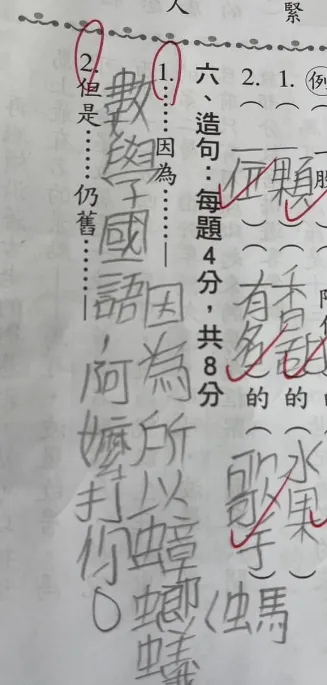 緊
人
例
1.（一顆）（香甜）的（水果）
2.（一位）（有名）的（歌手）
六、造句：每題4分，共8分
1.……因為……
因為所以蟑螂螞蟻
數學國語，阿嬤打你。
2.但是……仍舊……